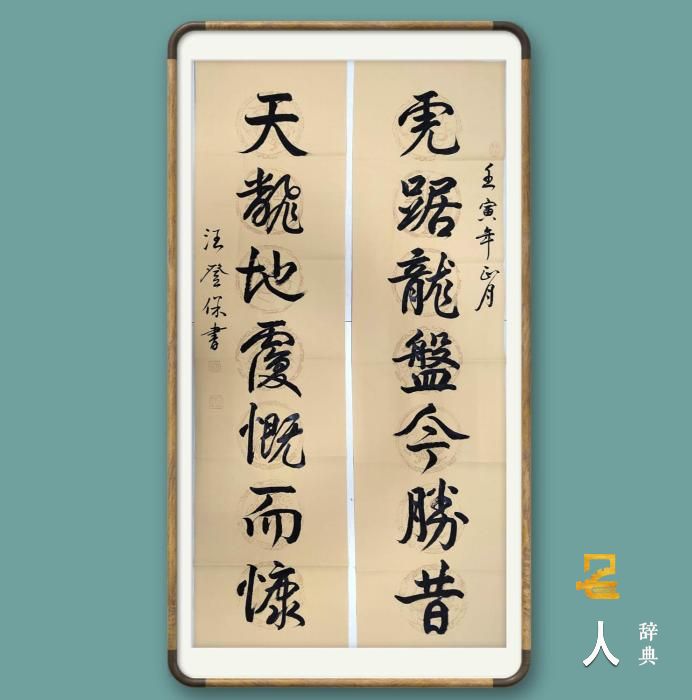 壬寅年正月
虎踞龍盤今勝昔
天翻地覆慨而慷
汪登保書
名人
辞典